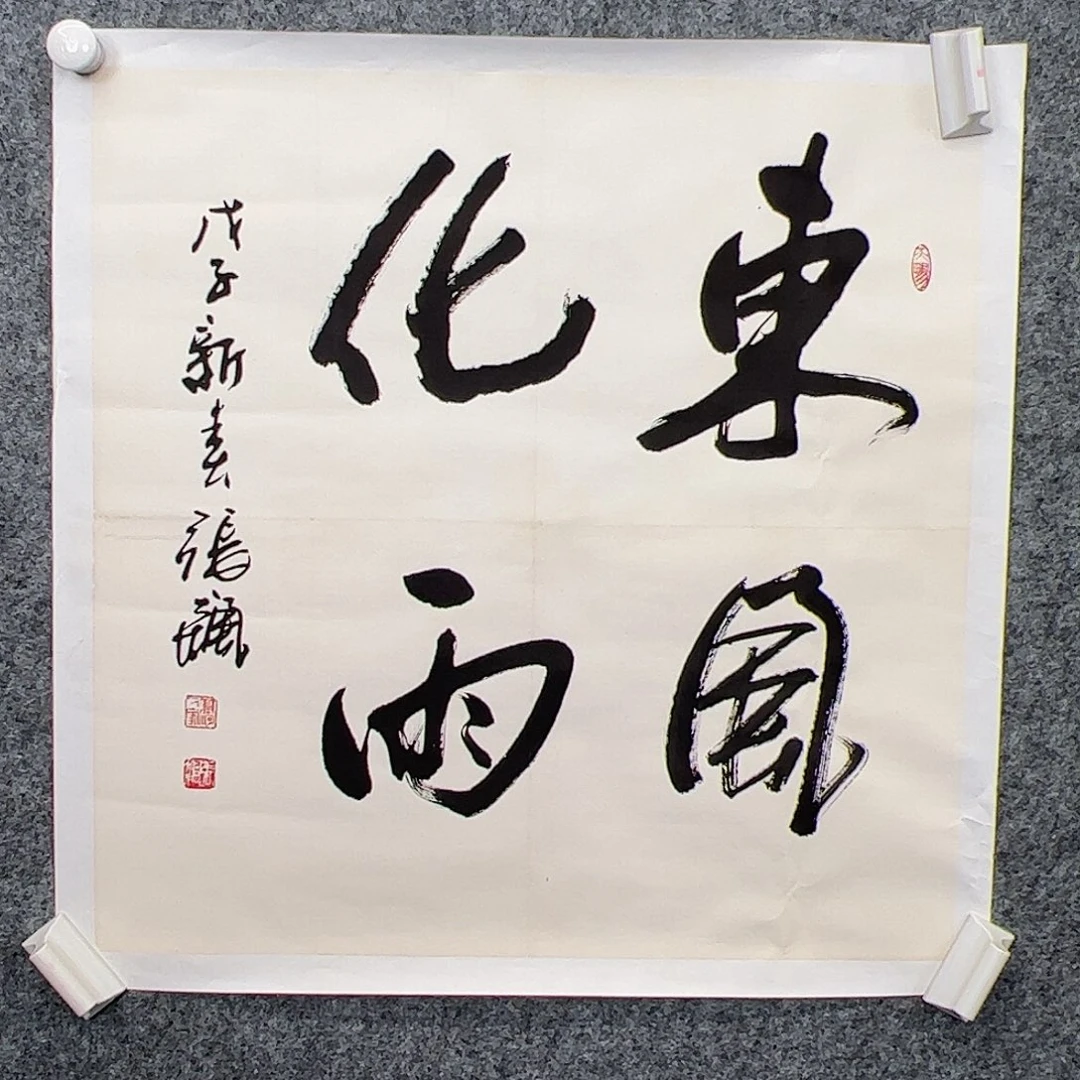 東風
化雨
戊子新春張